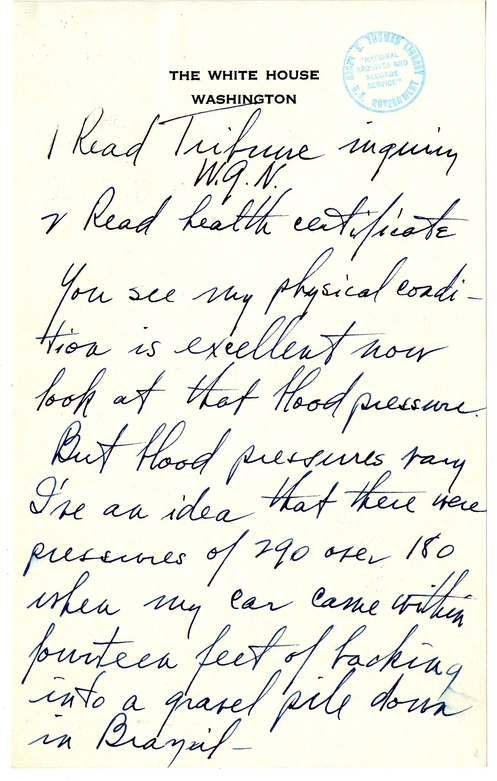 THE WHITE HOUSE
WASHINGTON
HARRY S. TRUMAN LIBRARY
"NATIONAL
ARCHIVES AND
RECORDS
SERVICE"
U.S. GOVERNMENT
1 Read Tribune inquiry
W.G.N.
2 Read health certificate
You see my physical condi-
tion is excellent now
look at that blood pressure.
But blood pressures vary
I've an idea that there were
pressures of 290 over 180
when my car came within
fourteen feet of backing
into a gravel pile down
in Brazil -